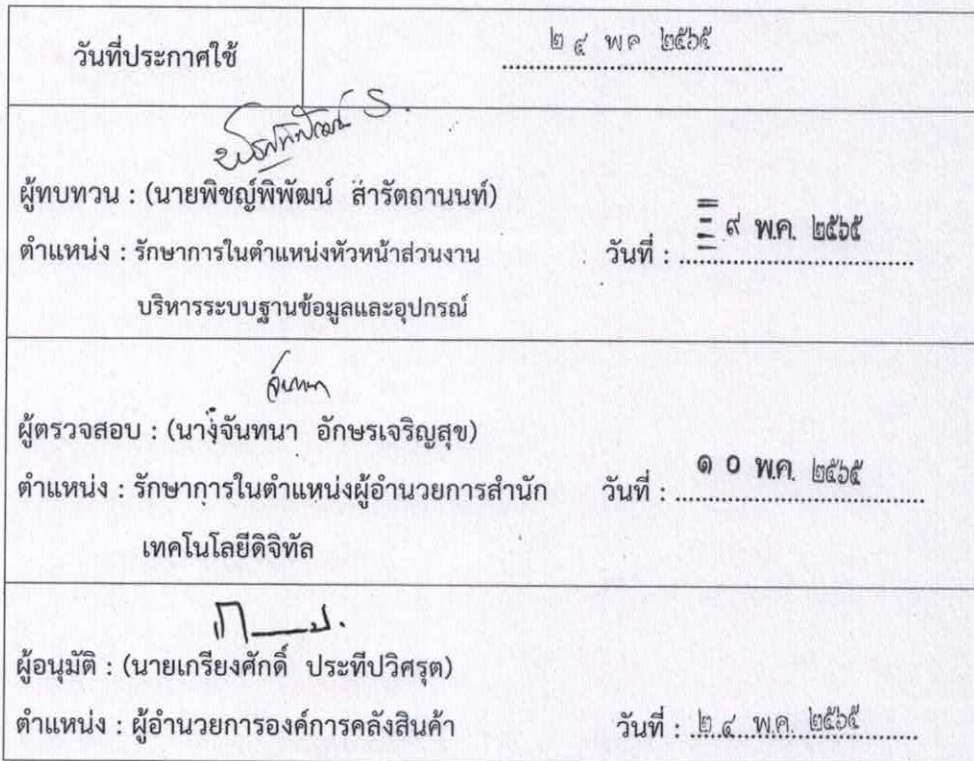 วันที่ประกาศใช้ ๒ ๔ พค ๒๕๖๕
ผู้ทบทวน : (นายพิชญ์พิพัฒน์ สำรัตถานนท์)
ตำแหน่ง : รักษาการในตำแหน่งหัวหน้าส่วนงาน วันที่ : ๙ พ.ค. ๒๕๖๕
บริหารระบบฐานข้อมูลและอุปกรณ์
ผู้ตรวจสอบ : (นางจันทนา อักษรเจริญสุข)
ตำแหน่ง : รักษาการในตำแหน่งผู้อำนวยการสำนัก วันที่ : ๑ ๐ พ.ค. ๒๕๖๕
เทคโนโลยีดิจิทัล
ผู้อนุมัติ : (นายเกรียงศักดิ์ ประทีปวิศรุต)
ตำแหน่ง : ผู้อำนวยการองค์การคลังสินค้า วันที่ : ๒ ๔ พ.ค. ๒๕๖๕